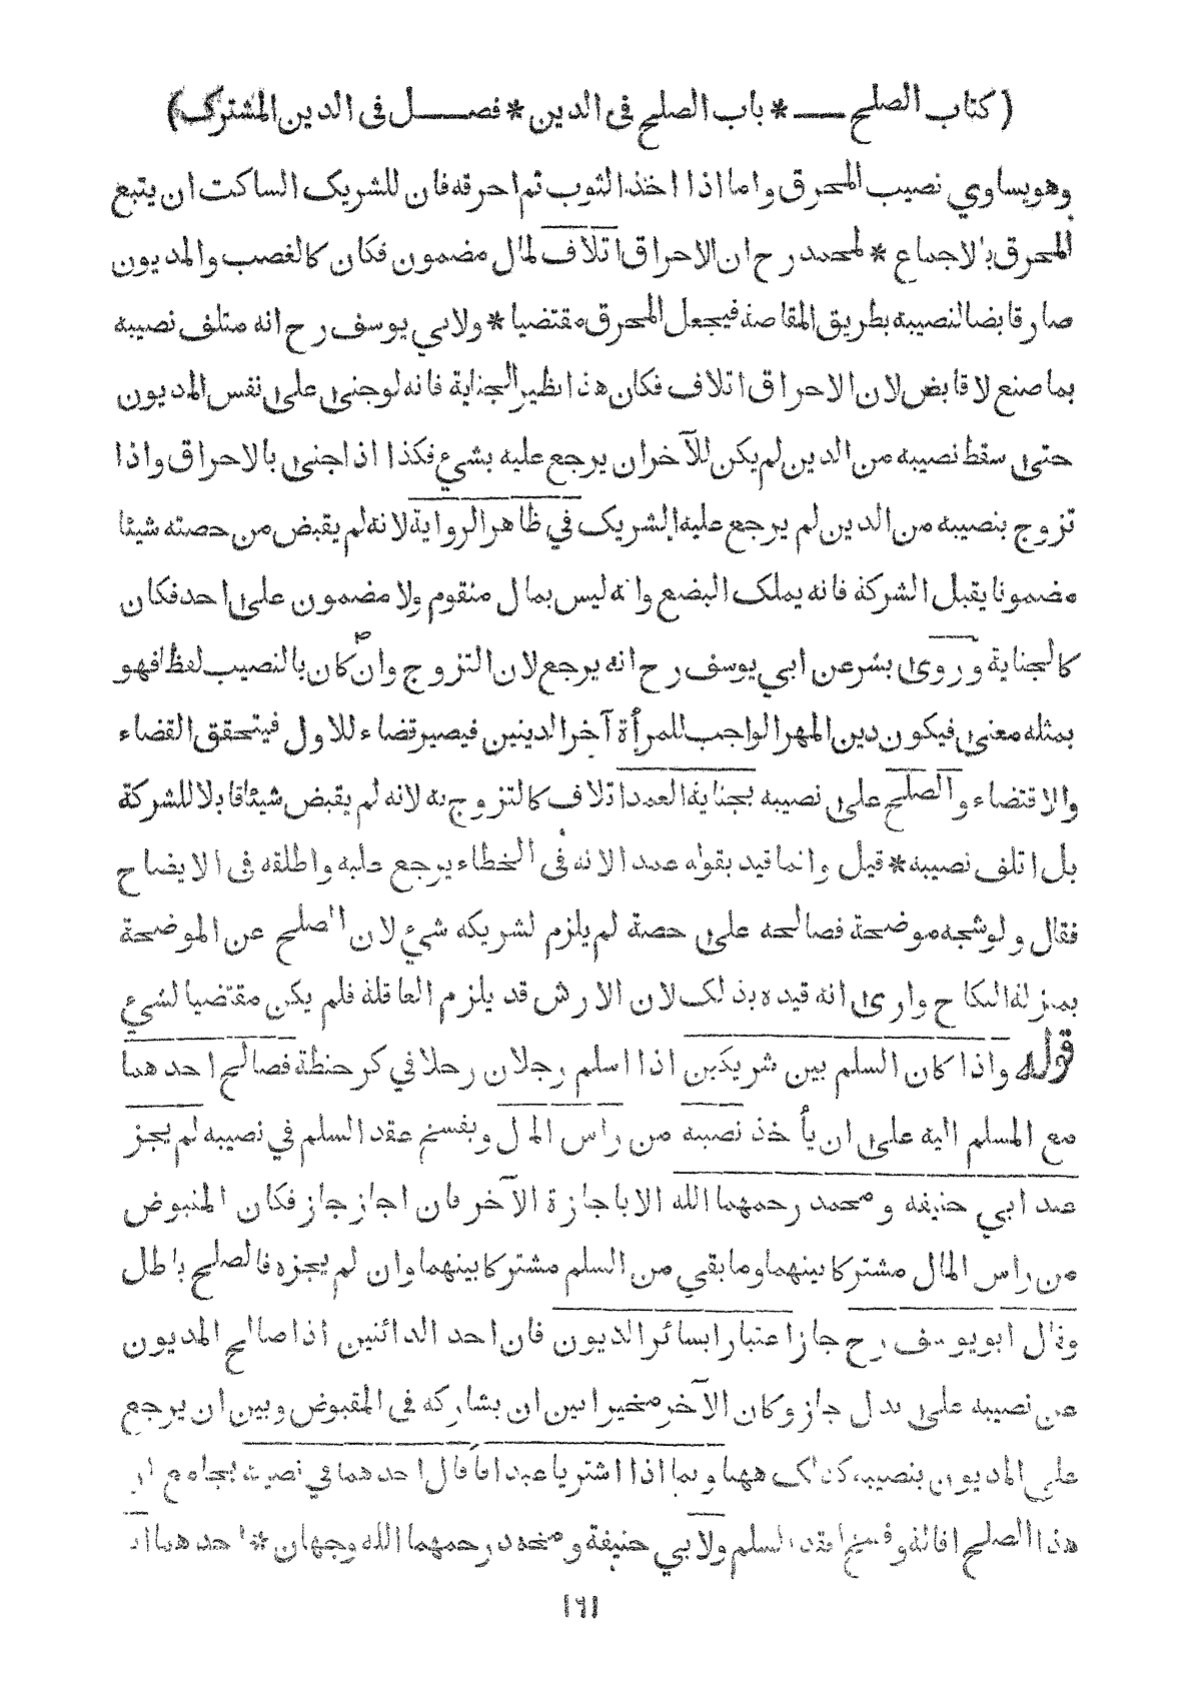 ( كتاب الصلح — * باب الصلح فى الدين * فصل فى الدين المشترك)
وهويساوي نصيب المحرق واما اذا اخذ الثوب ثم احرقه فان للشريك الساكت ان يتبع
المحرق بالاجماع * لمحمد رح ان الاحراق اتلاف لمال مضمون فكان كالغصب والمديون
صار قابضا لنصيبه بطريق المقاصة فيجعل المحرق مقتضيا * ولابي يوسف رح انه متلف نصيبه
بماصنع لا قابض لان الاحراق اتلاف فكان هذا نظير الجناية فانه لوجنى على نفس المديون
حتى سقط نصيبه من الدين لم يكن للآخر ان يرجع عليه بشيء فكذا اذا جنى بالاحراق واذا
تزوج بنصيبه من الدين لم يرجع عليه الشريك في ظاهر الرواية لانه لم يقبض من حصته شيئا
مضمونا يقبل الشركة فانه يملك البضع وانه ليس بمال متقوم ولا مضمون على احد فكان
كالجناية وروى بشر عن ابي يوسف رح انه يرجع لان التزوج وان كان بالنصيب لفظا فهو
بمثله معنى فيكون دين المهر الواجب للمرأة آخر الدينين فيصير قضاء للاول فيتحقق القضاء
والاقتضاء والصلح على نصيبه بجناية العمد اتلاف كالتزوج به لانه لم يقبض شيئا قابلا للشركة
بل اتلف نصيبه * قيل وانما قيد بقوله عمد الانه فى الخطاء يرجع عليه واطلقه فى الايضاح
فقال ولوشجه موضحة فصالحه على حصة لم يلزم لشريكه شيء لان الصلح عن الموضحة
بمنزلة النكاح وارى انه قيده بذلك لان الارش قد يلزم العاقلة فلم يكن مقتضيا لشيء
قوله واذا كان السلم بين شريكين اذا اسلم رجلان رجلا في كر حنطة فصالح احدهما
مع المسلم اليه على ان يأخذ نصيبه من راس المال ويفسخ عقد السلم في نصيبه لم يجز
عند ابي حنيفه ومحمد رحمهما الله الا باجازة الآخر فان اجاز جاز فكان المقبوض
من راس المال مشتركا بينهما وما بقي من السلم مشتركا بينهما وان لم يجزه فالصلح باطل
وقال ابويوسف رح جاز اعتبارا بسائر الديون فان احد الدائنين اذا صالح المديون
عن نصيبه على بدل جاز وكان الآخر مخيرا بين ان يشاركه فى المقبوض وبين ان يرجع
على المديون بنصيبه كذلك ههنا وبما اذا اشتريا عبدا فاقال احدهما في نصيبه بجامع ان
هذا الصلح اقالة وفسخ لعقد السلم ولابي حنيفة ومحمد رحمهما الله وجهان * احدهما انه
١٦١